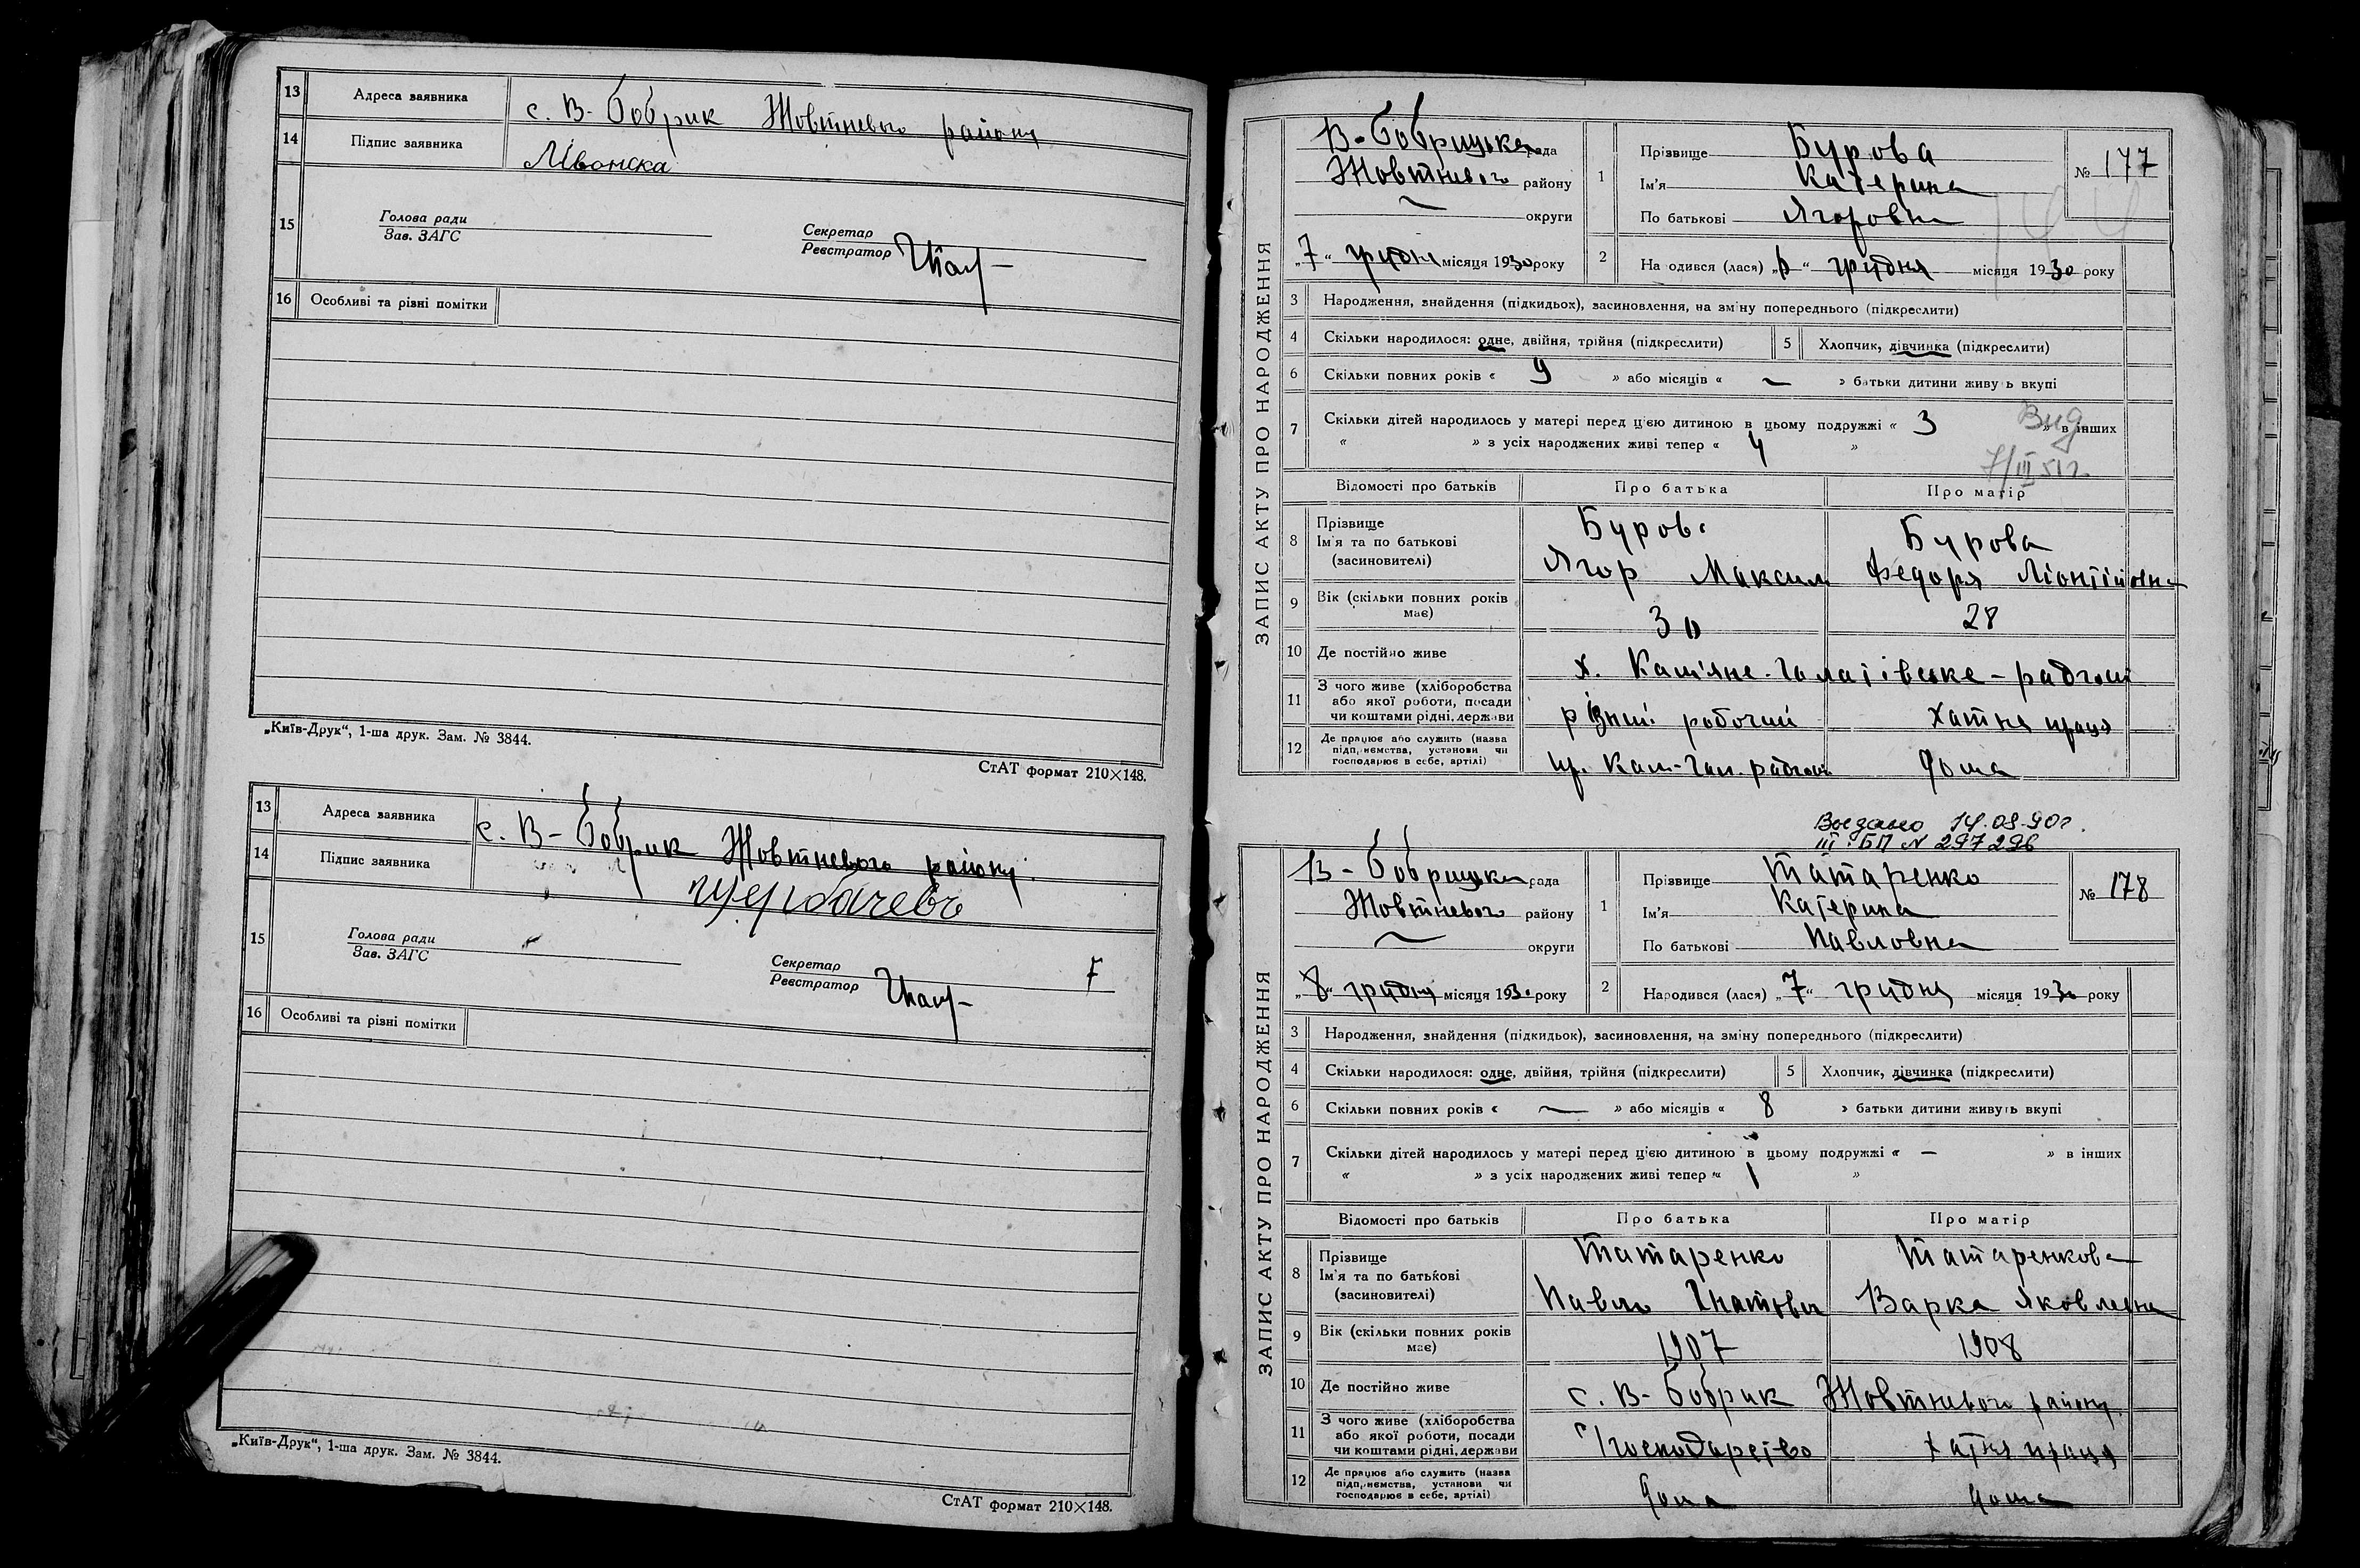 13 Адреса заявника с. В-Бобрик Жовтневого району
14 Підпис заявника
15 Голова ради
Зав. ЗАГС
Секретар
Реєстратор
16 Особливі та різні помітки
„Київ-Друк“, 1-ша друк. Зам. № 3844.
СтАТ формат 210×148.
13 Адреса заявника с. В-Бобрик Жовтневого району
14 Підпис заявника
15 Голова ради
Зав. ЗАГС
Секретар
Реєстратор
16 Особливі та різні помітки
„Київ-Друк“, 1-ша друк. Зам. № 3844.
СтАТ формат 210×148.
ЗАПИС АКТУ ПРО НАРОДЖЕННЯ
В-Бобрицька рада
Жовтневого району
— округи
„7“ грудня місяця 1930 року
1 Прізвище Бурова
Ім'я Катерина
По батькові Ягоровна
№ 177
2 На одився (лася) „6“ грудня місяця 1930 року
3 Народження, знайдення (підкидьок), засиновлення, на зміну попереднього (підкреслити)
4 Скільки народилося: одне, двійня, трійня (підкреслити) 5 Хлопчик, дівчинка (підкреслити)
6 Скільки повних років « 9 » або місяців « — » батьки дитини живуть вкупі
7 Скільки дітей народилось у матері перед ц'єю дитиною в цьому подружжі « 3 » в інших
« » з усіх народжених живі тепер « 4 »
Вид
7/III 51 г.
Відомості про батьків Про батька Про матір
8 Прізвище
Ім'я та по батькові
(засиновителі)
Буров Бурова
Ягор Максим Федоря Ліонтійовна
9 Вік (скільки повних років має) 30 28
10 Де постійно живе х. Кам'яне-
11 З чого живе (хліборобства або якої роботи, посади чи коштами рідні, держави різний робочий хатня праця
12 Де працює або служить (назва підприємства, установи чи господарює в себе, артілі) дома
Выдано 14.09.90г.
III-БП N 297296
ЗАПИС АКТУ ПРО НАРОДЖЕННЯ
В-Бобрицька рада
Жовтневого району
— округи
„8“ грудня місяця 1930 року
1 Прізвище Татаренко
Ім'я Катерина
По батькові Павловна
№ 178
2 Народився (лася) „7“ грудня місяця 1930 року
3 Народження, знайдення (підкидьок), засиновлення, на зміну попереднього (підкреслити)
4 Скільки народилося: одне, двійня, трійня (підкреслити) 5 Хлопчик, дівчинка (підкреслити)
6 Скільки повних років « — » або місяців « 8 » батьки дитини живуть вкупі
7 Скільки дітей народилось у матері перед ц'єю дитиною в цьому подружжі « — » в інших
« » з усіх народжених живі тепер « 1 »
Відомості про батьків Про батька Про матір
8 Прізвище
Ім'я та по батькові
(засиновителі)
Татаренко Татаренкова
Павло Гнатович Варка Яковлевна
9 Вік (скільки повних років має) 1907 1908
10 Де постійно живе с. В-Бобрик Жовтневого району
11 З чого живе (хліборобства або якої роботи, посади чи коштами рідні, держави с/господарство хатня праця
12 Де працює або служить (назва підприємства, установи чи господарює в себе, артілі) дома дома